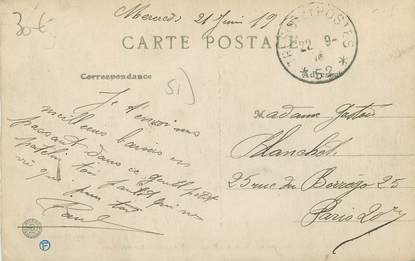 30 €
Mercredi 21 Juin 1916
CARTE POSTALE
TRESOR ET POSTES
22 - 9 -
16
* 52 *
Correspondance
Adresse
51)
Je t'envoi mes
meilleurs baisers en
passant dans ce gentil petit
patelin ton qui ne
vis que pour toi
Paul
Madame Gaston
Blanchet
25 rue du Borrégo 25
Paris 20e